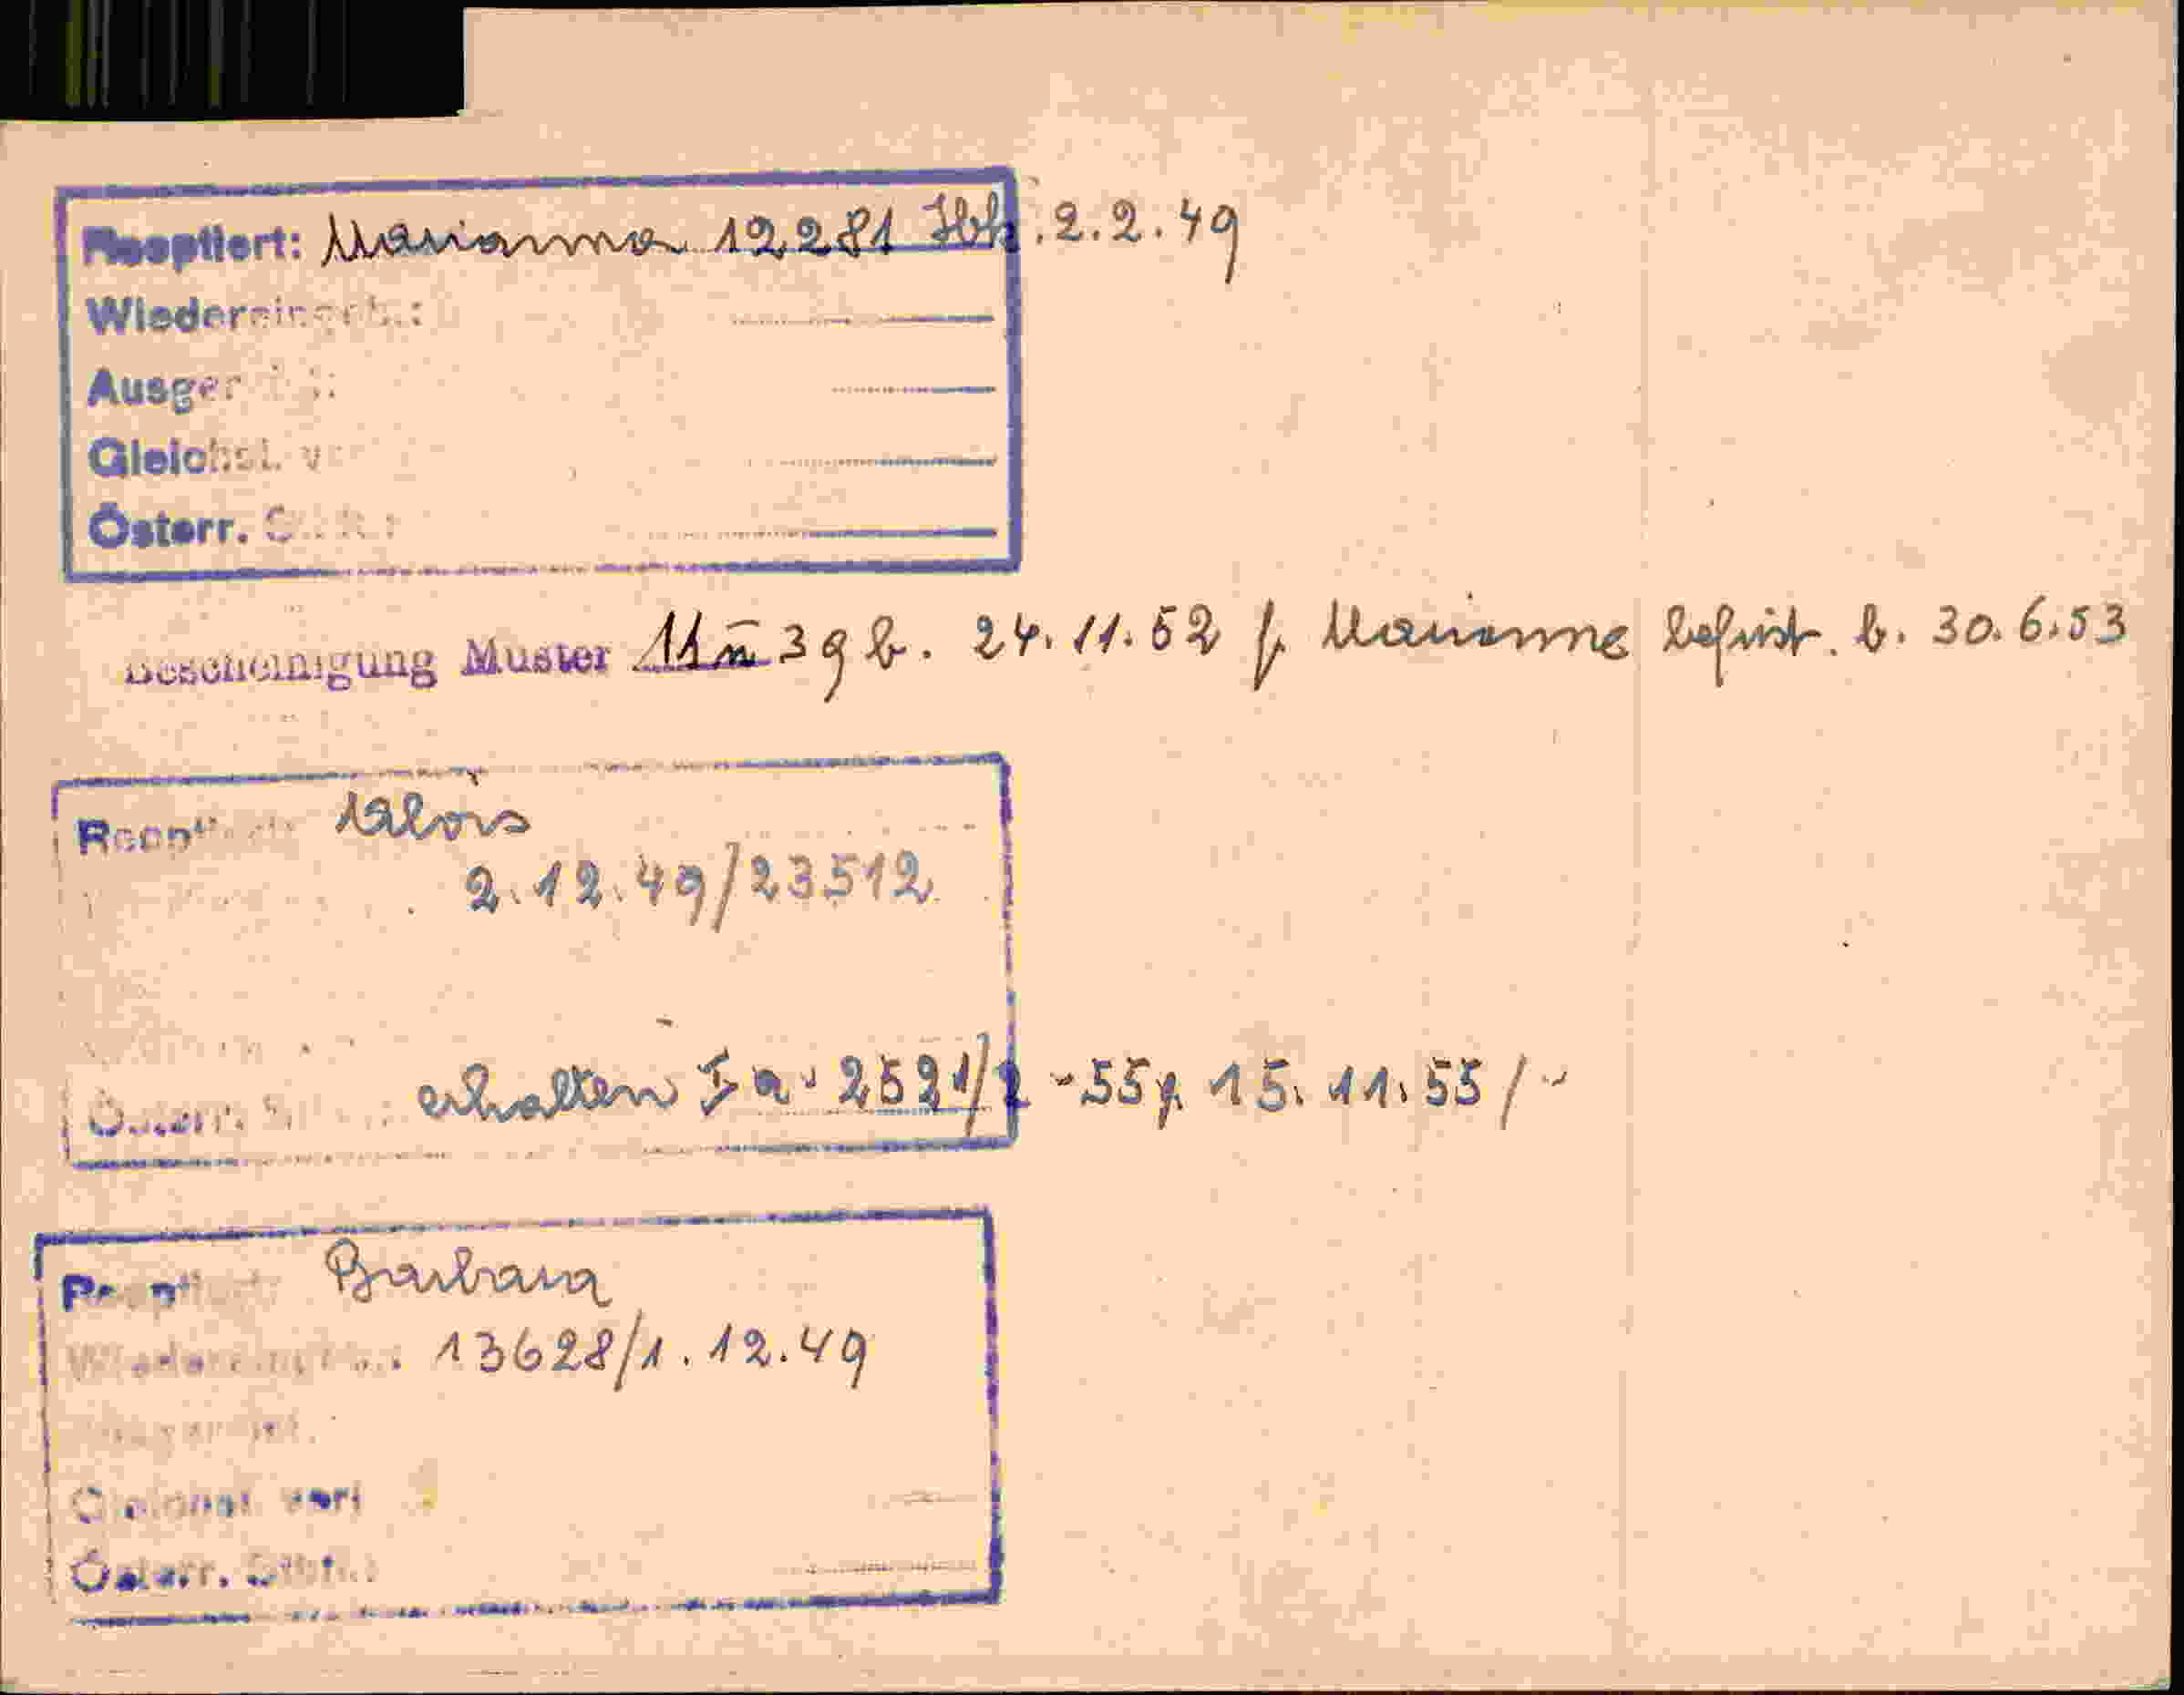 Reoptiert: Marianna 12281 Ibk. 2.2.49
Wiedereingeb.:
Ausgeb.:
Gleichst. v
Österr.
Bescheinigung Muster 11 m 39 b. 24.11.52 f. Marianne befrist. b. 30.6.53
Reoptiert: Alois
2.12.49/23512
Österr. erhalten I a - 2521/2 -55 15.11.55/-
Reoptiert: Barbara
13628/1.12.49
Gleichst. ver
Österr. Stb.: